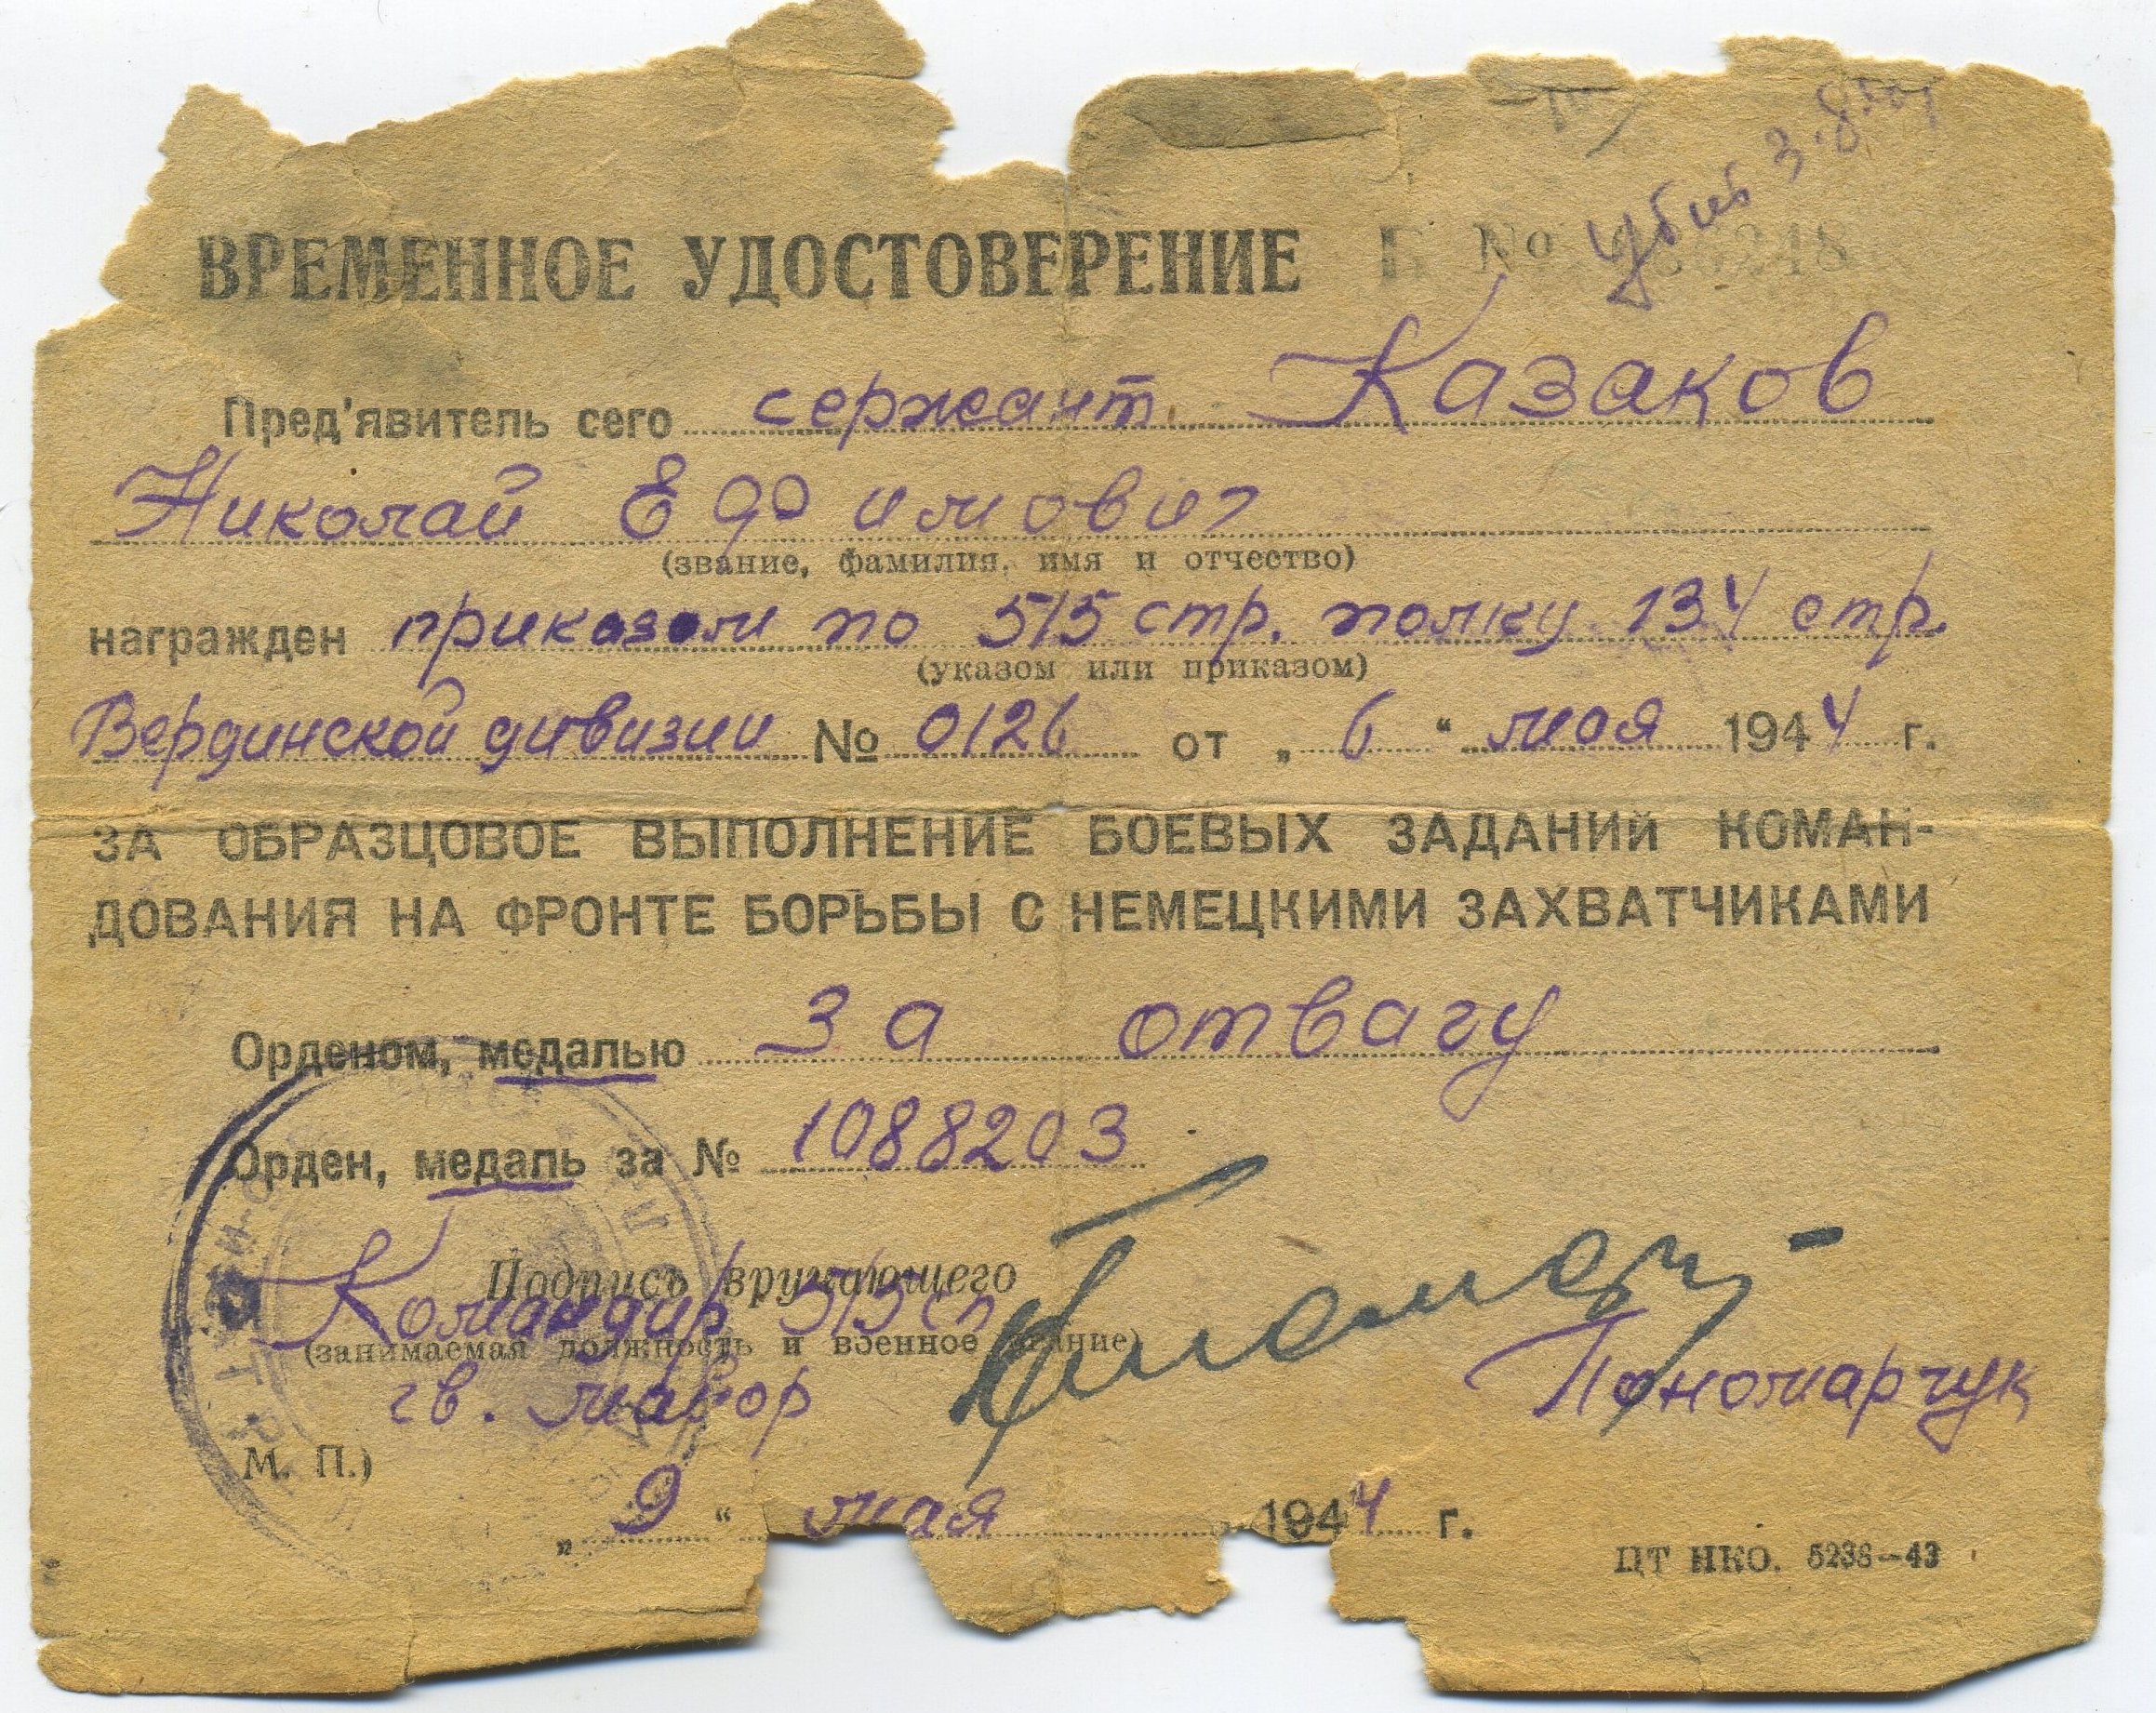 убит 3.8
ВРЕМЕННОЕ УДОСТОВЕРЕНИЕ Б №
Пред'явитель сего сержант Казаков
Николай Ефимович
(звание, фамилия, имя и отчество)
награжден приказом по 515 стр. полку 134 стр.
(указом или приказом)
Вердинской дивизии № 0126 от „ 6 “ мая 1944 г.
ЗА ОБРАЗЦОВОЕ ВЫПОЛНЕНИЕ БОЕВЫХ ЗАДАНИЙ КОМАН-
ДОВАНИЯ НА ФРОНТЕ БОРЬБЫ С НЕМЕЦКИМИ ЗАХВАТЧИКАМИ
Орденом, медалью За отвагу
Орден, медаль за № 1088203
Подпись вручающего
Командир 515 сп
(занимаемая должность и военное звание)
гв. майор Пономарчук
М. П.)
„ 9 “ мая 1944 г.
ЦТ НКО. 5238—43